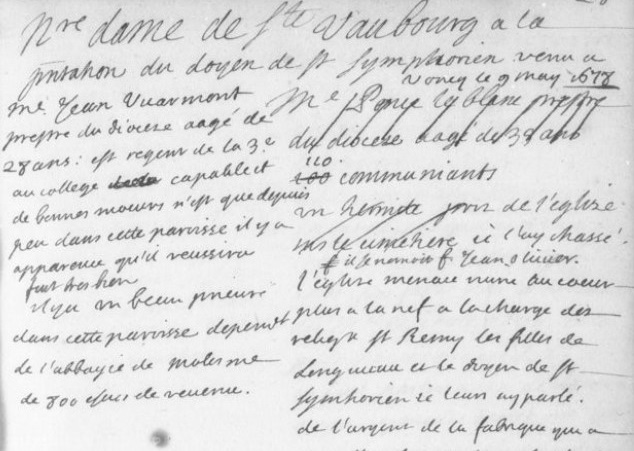 Nre dame de Ste Vaubourg a la
pntation du doyen de St Symphorien venu a
Voncq le 9 may 1678
me Jean Vuarmont
prestre du diocese aagé de
28 ans: est regent de la 3e
au college capable et
de bonnes moeurs n'est que depuis
peu dans cette paroisse il y a
apparence qu'il reussira
fort bien
il y a un beau prieuré
dans cette paroisse dependt
de l'abbayie de molesme
de 800 escus de revenu.
Me Ponce le blanc prestre
du diocese aagé de 38 ans
110
100 communiants
un hermite pres de l'eglise
ds le cimetiere ie l'ay chassé.
il se nomoit f. Jean olivier.
l'eglise menace ruine au coeur
plus a la nef a la charge des
relig x St Remy les filles de
Longueau et le doyen de St
symphorien ie leur ay parlé.
de l'argent de la fabrique qui a